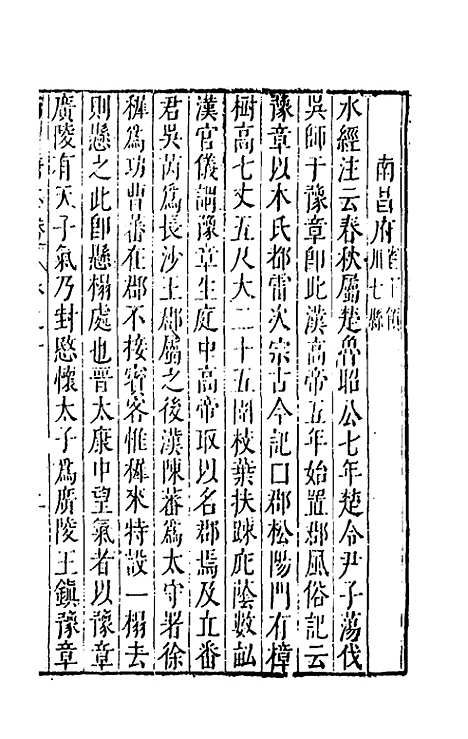 南昌府 州七縣
水經注云春秋屬楚魯昭公七年楚令尹子蕩伐
吳師于豫章卽此漢高帝五年始置郡風俗記云
豫章以木氏郡雷次宗古今記口郡松陽門有樟
樹高七丈五尺大二十五圍枝葉扶踈庇蔭數畝
漢官儀謂豫章生庭中高帝取以名郡焉及立番
君吳芮爲長沙王郡屬之後漢陳蕃爲太守署徐
穉爲功曹蕃在郡不接賓客惟穉來特設一榻去
則懸之此卽懸榻處也晋太康中望氣者以豫章
廣陵有天子氣乃封愍懷太子爲廣陵王鎮豫章